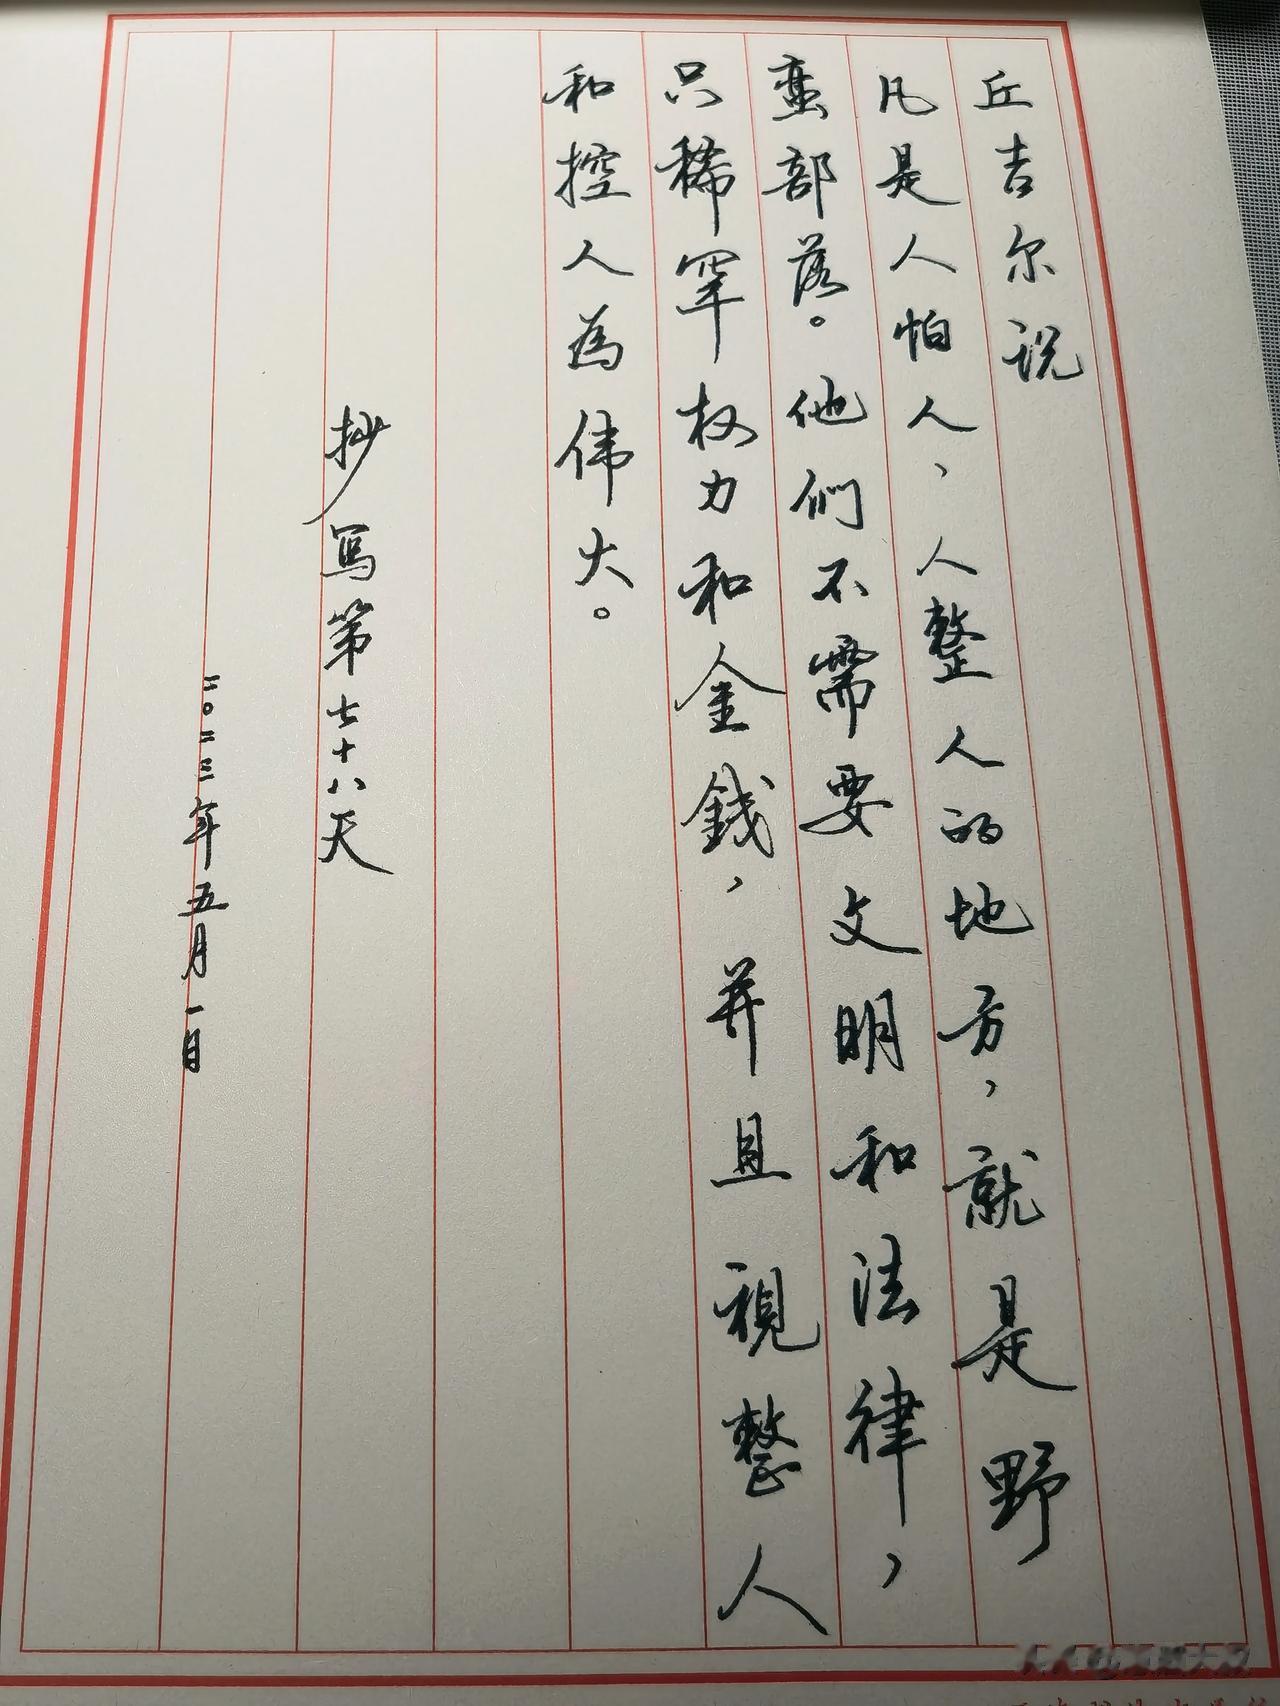 丘吉尔说
凡是人怕人、人整人的地方，就是野
蛮部落。他們不需要文明和法律，
只稀罕权力和金錢，并且視整人
和控人為伟大。
抄写第七十八天
二〇二三年五月一日